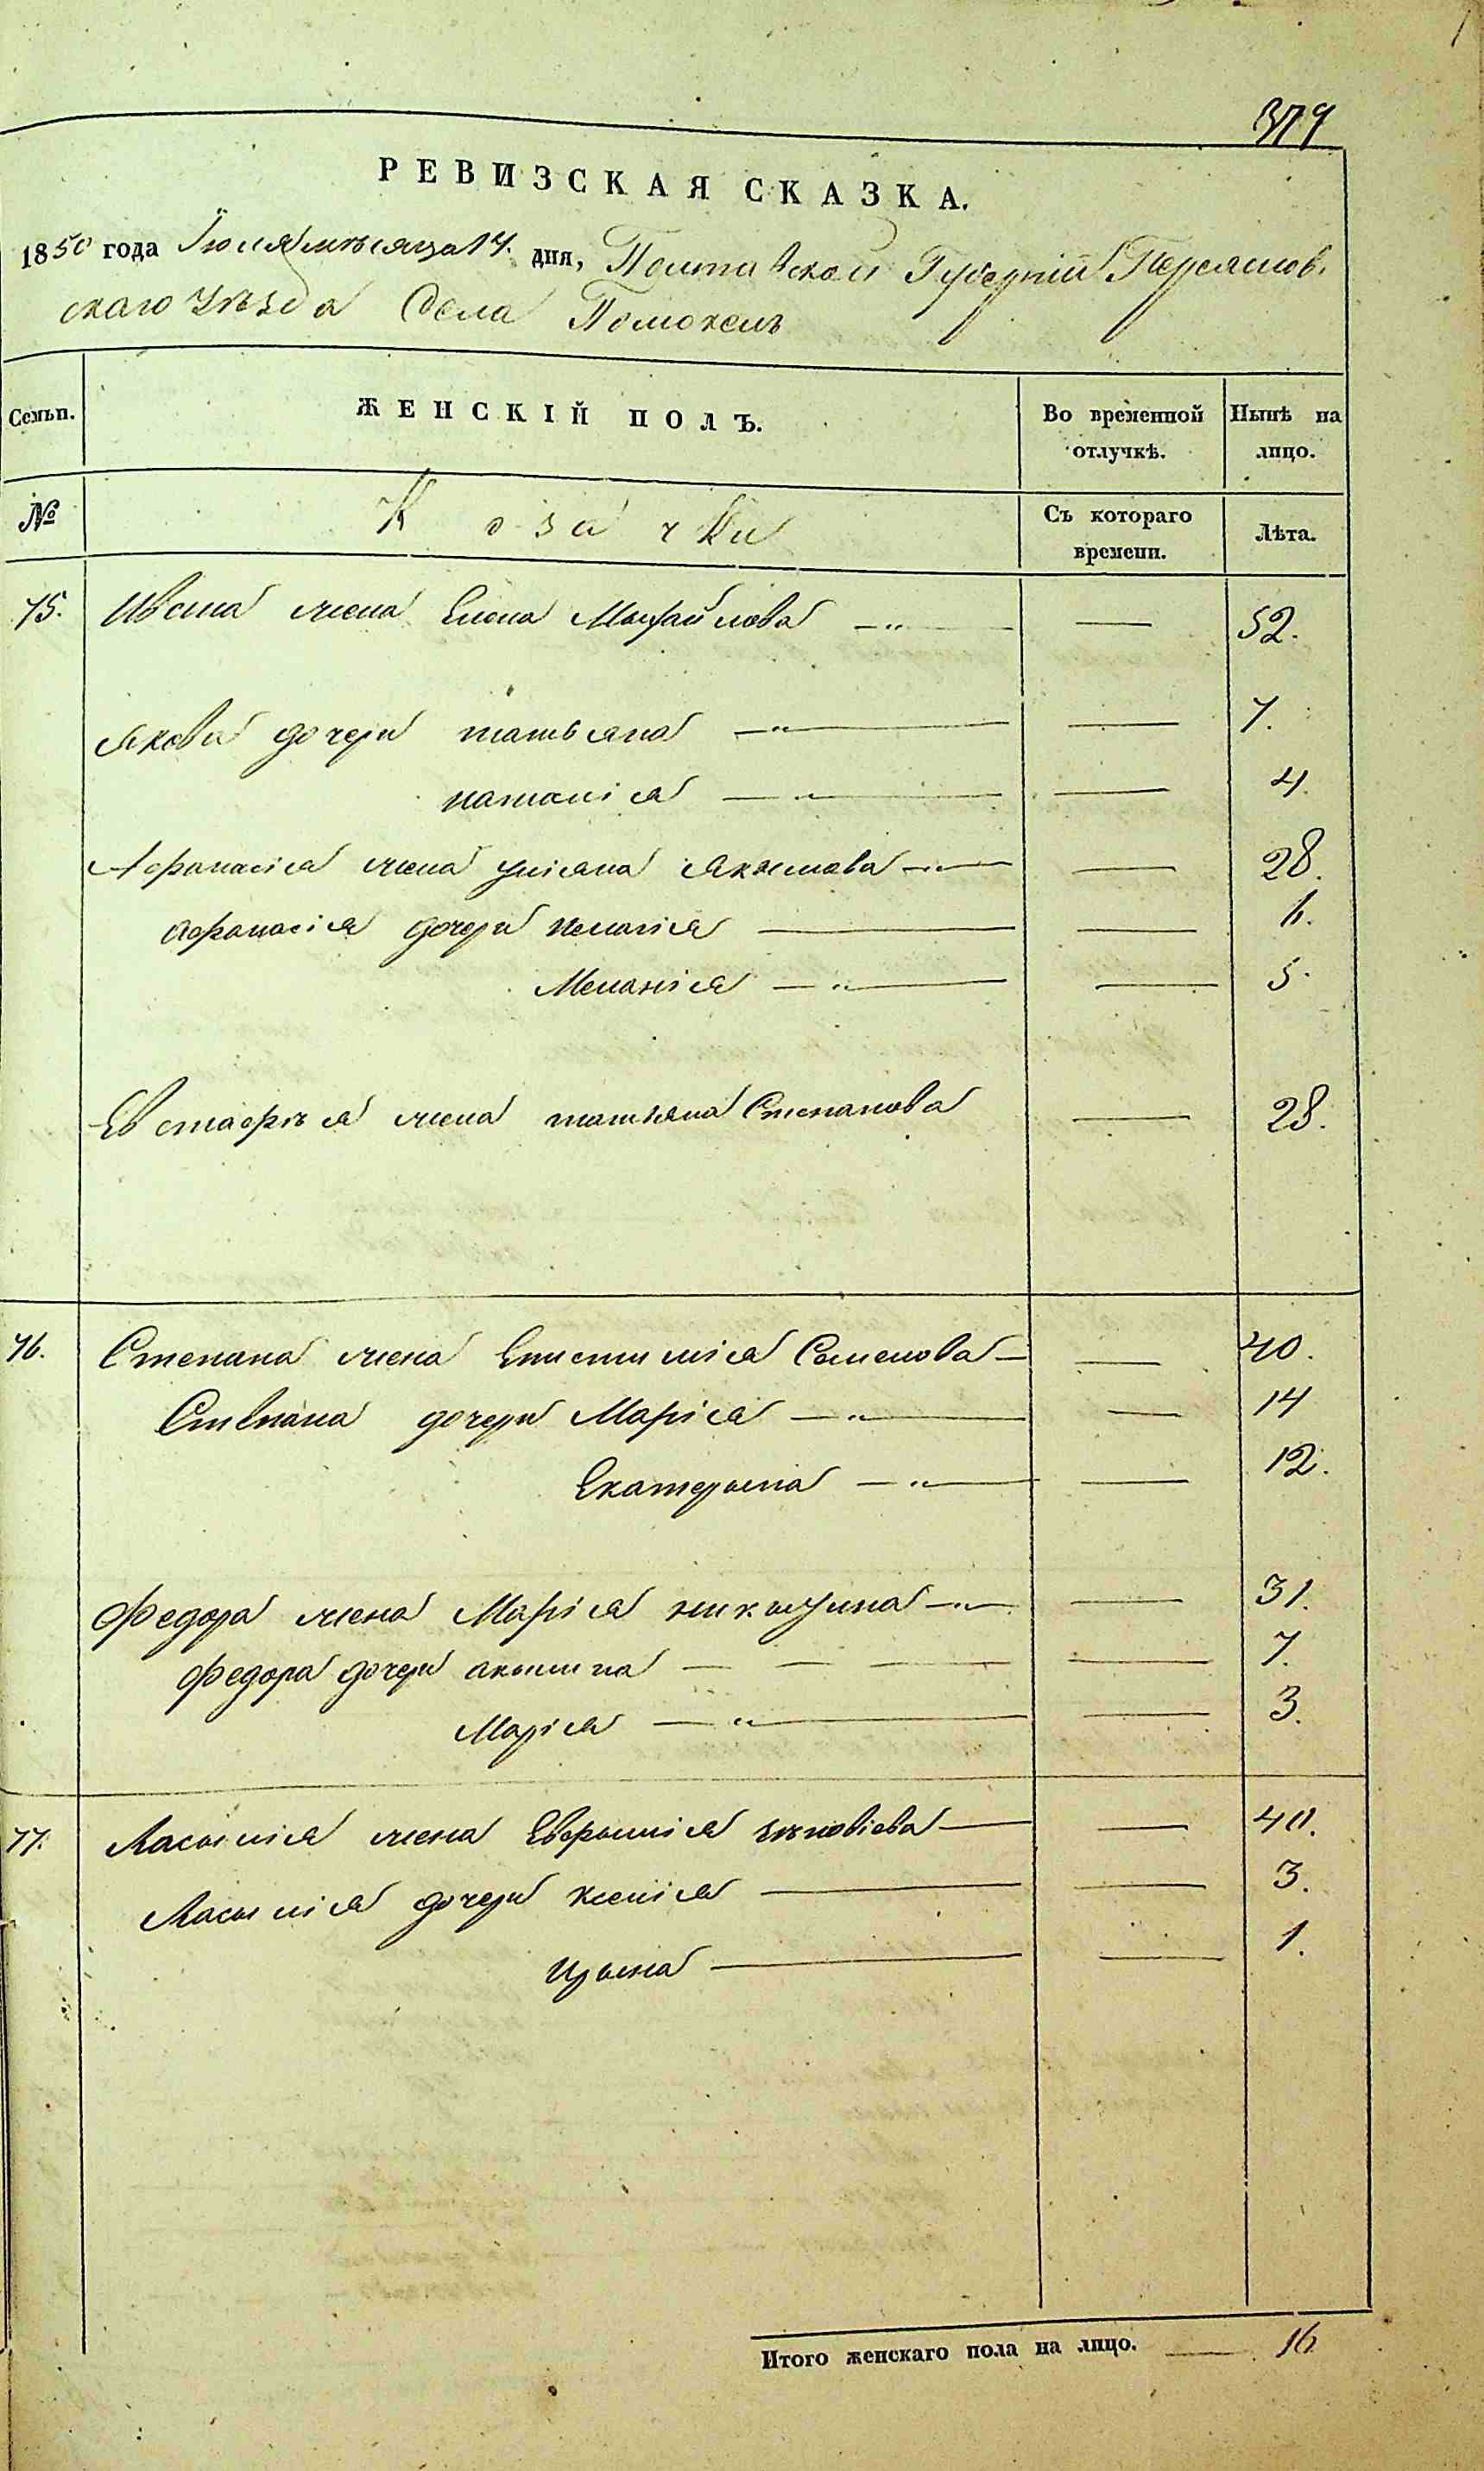 379
РЕВИЗСКАЯ СКАЗКА.
1850 года Іюля мѣсяца 14. дня, Полтавской Губерніи Переяслов.
скаго уѣзда Села Помоклъ
Семьи. ЖЕНСКІЙ ПОЛЪ. Во временной отлучкѣ. Нынѣ на лицо.
№ Козачки Съ котораго времени. Лѣта.
75. Ивана жена Елена Мыхайлова — 52.
Якова дочери татьяна — 7.
наталія — 4.
Афанасія жена уліяна Якимова — 28.
Афанасія дочери пелагія — 6.
Меланія — 5.
Евстафія жена татьяна Степанова — 28.
76. Степана жена Епистимія Семенова — 40.
Степана дочери Марія — 14
Екатерына — 12.
Федора жена Марія — 31.
Федора дочери акилина — 7.
Марія — 3.
77. Васылія жена Евфымія — 40.
Васылія дочери ксенія — 3.
Ирына — 1.
Итого женскаго пола на лицо. — 16